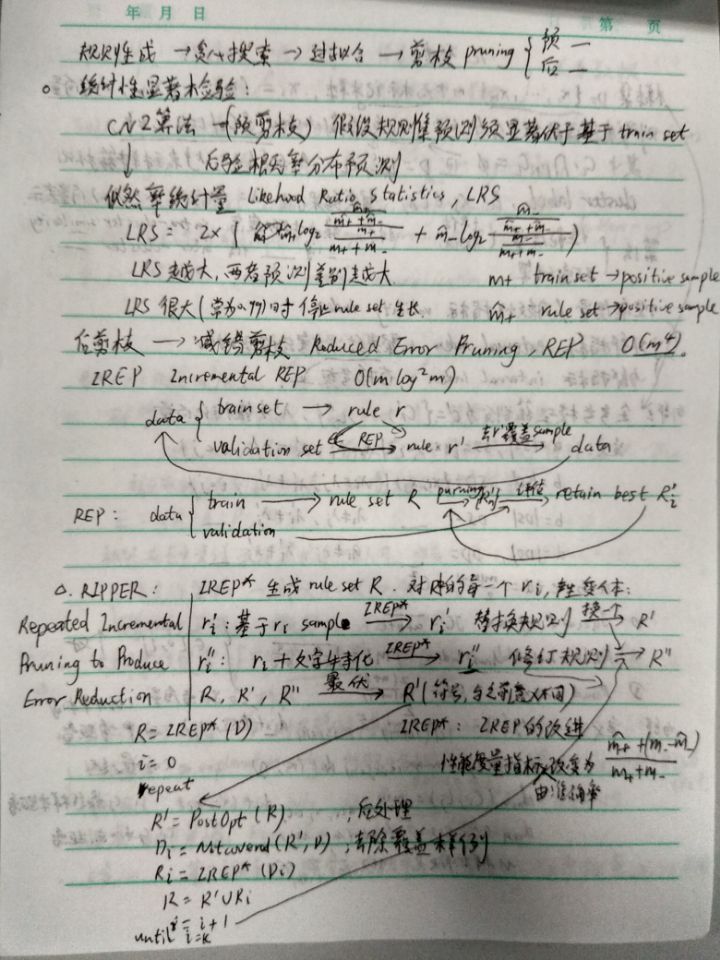 年 月 日 第 页
规则生成 → 贪心搜索 → 过拟合 → 剪枝 pruning { 预一 后一
。统计性显著性检验：
CN2算法 —(预剪枝) 假设规则集预测须显著优于基于train set
↓ 后验概率分布预测
似然率统计量 Likelihood Ratio Statistics, LRS
LRS = 2×( m̂+ log₂ (m̂+/(m̂+ + m̂-))/(m+/(m+ + m-)) + m̂- log₂ (m̂-/(m̂+ + m̂-))/(m-/(m+ + m-)) )
LRS越大，两者预测差别越大. m+ train set → positive sample
LRS 很大(常为0.99)时停止rule set 生长. m̂+ rule set → positive sample
后剪枝 → 减错剪枝 Reduced Error Pruning, REP O(m⁴).
IREP Incremental REP O(m log²m)
data { train set → rule r
validation set REP → rule r' 去r'覆盖sample → data
REP: data { train → rule set R purning → {R'i} 评估 → retain best R'i
validation
△. RIPPER: IREP* 生成rule set R. 对R的每一个 ri, 产生变体:
Repeated Incremental r'i: 基于ri sample IREP* → r'i 替换规则 换一个 → R'
Pruning to Produce r''i: ri + 文字特化 IREP* → r''i 修订规则 → R''
Error Reduction R, R', R'' 最优 → R'(符号, 与之前意义不同)
R = IREP*(D) IREP*: IREP的改进
i = 0 性能度量指标改变为 (m̂+ + (m- - m̂-))/(m+ + m-)
repeat 由准确率
R' = PostOpt(R) ; 后处理
Di = Notcovered(R', D) ; 去除覆盖样例
Ri = IREP*(Di)
R = R'∪Ri
i = i+1
until i=k